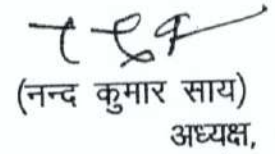 (नन्द कुमार साय)
अध्यक्ष,